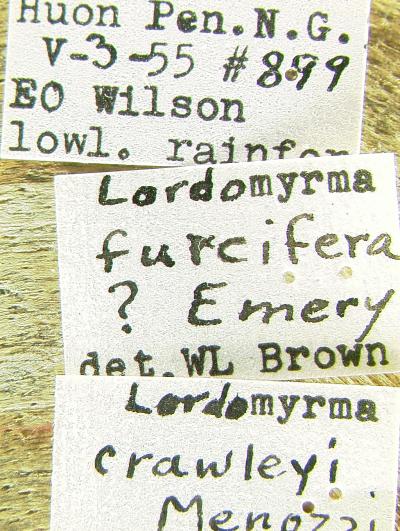 Huon Pen. N.G.
V-3-55 #899
EO Wilson
lowl. rainfor
Lordomyrma
furcifera
? Emery
det. WL Brown
Lordomyrma
crawleyi
Menozzi